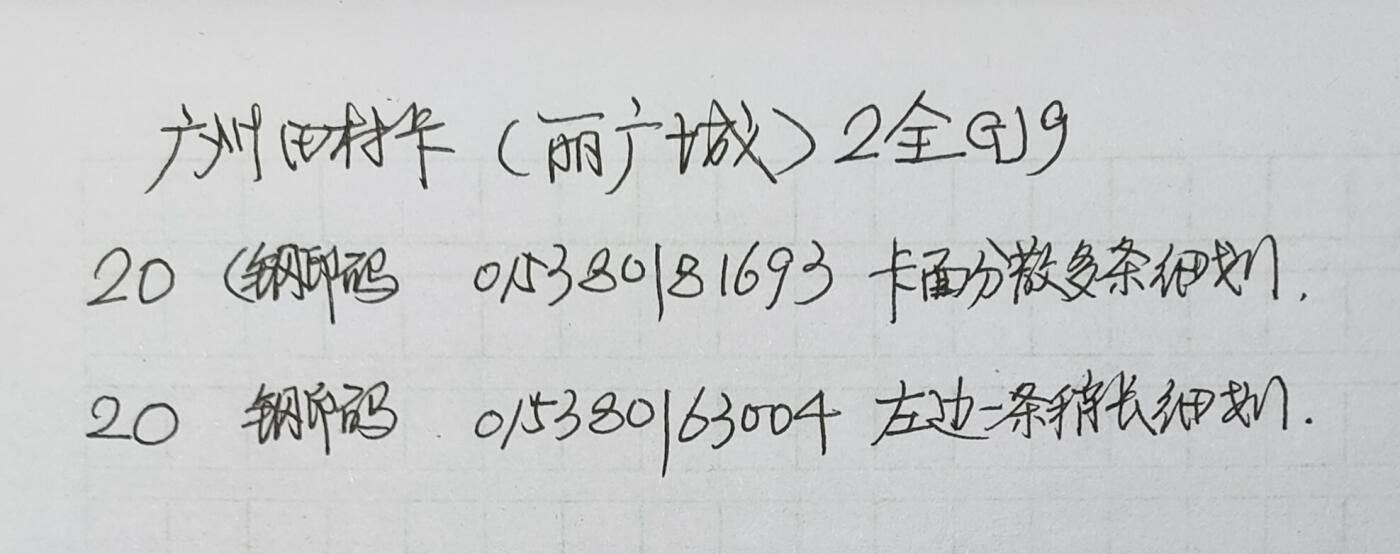 广州田村卡（丽广城）2全GJ9
20（钢印码 01538018 1693 卡面分散多条细划.
20 钢印码 015380163004 左边一条稍长细划.